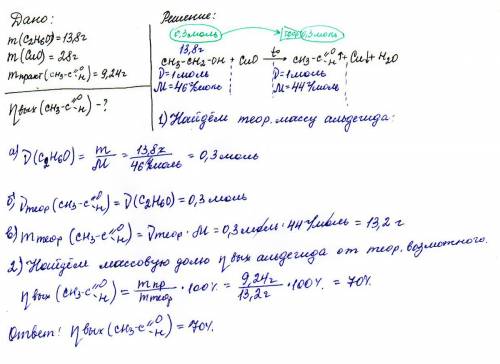 Дано:
m(C₂H₆O)=13,8г
m(CuO)=28г
mпракт(CH₃-C=O-H)=9,24г
ηвых(CH₃-C=O-H)-?
Решение:
0,3моль 0,3моль
13,8г
CH₃-CH₂-OH + CuO t°→ CH₃-C=O-H↑+ Cu↓+ H₂O
ν=1моль ν=1моль
M=46г/моль M=44г/моль
1) Найдём теор. массу альдегида:
а) ν(C₂H₆O) = m/M = 13,8г/46г/моль = 0,3моль
б) νтеор(CH₃-C=O-H)=ν(C₂H₆O)=0,3моль
в) mтеор(CH₃-C=O-H)=νтеор·M=0,3моль·44г/моль=13,2г
2) Найдём массовую долю ηвых альдегида от теор. возможного.
ηвых(CH₃-C=O-H)=mпр/mтеор·100%=9,24г/13,2г·100%=70%
Ответ: ηвых(CH₃-C=O-H)=70%.